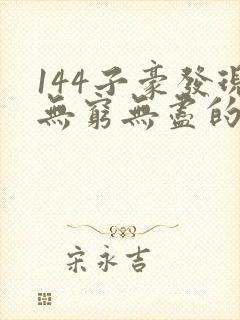 144子豪發現
無窮無盡的
宋永吉